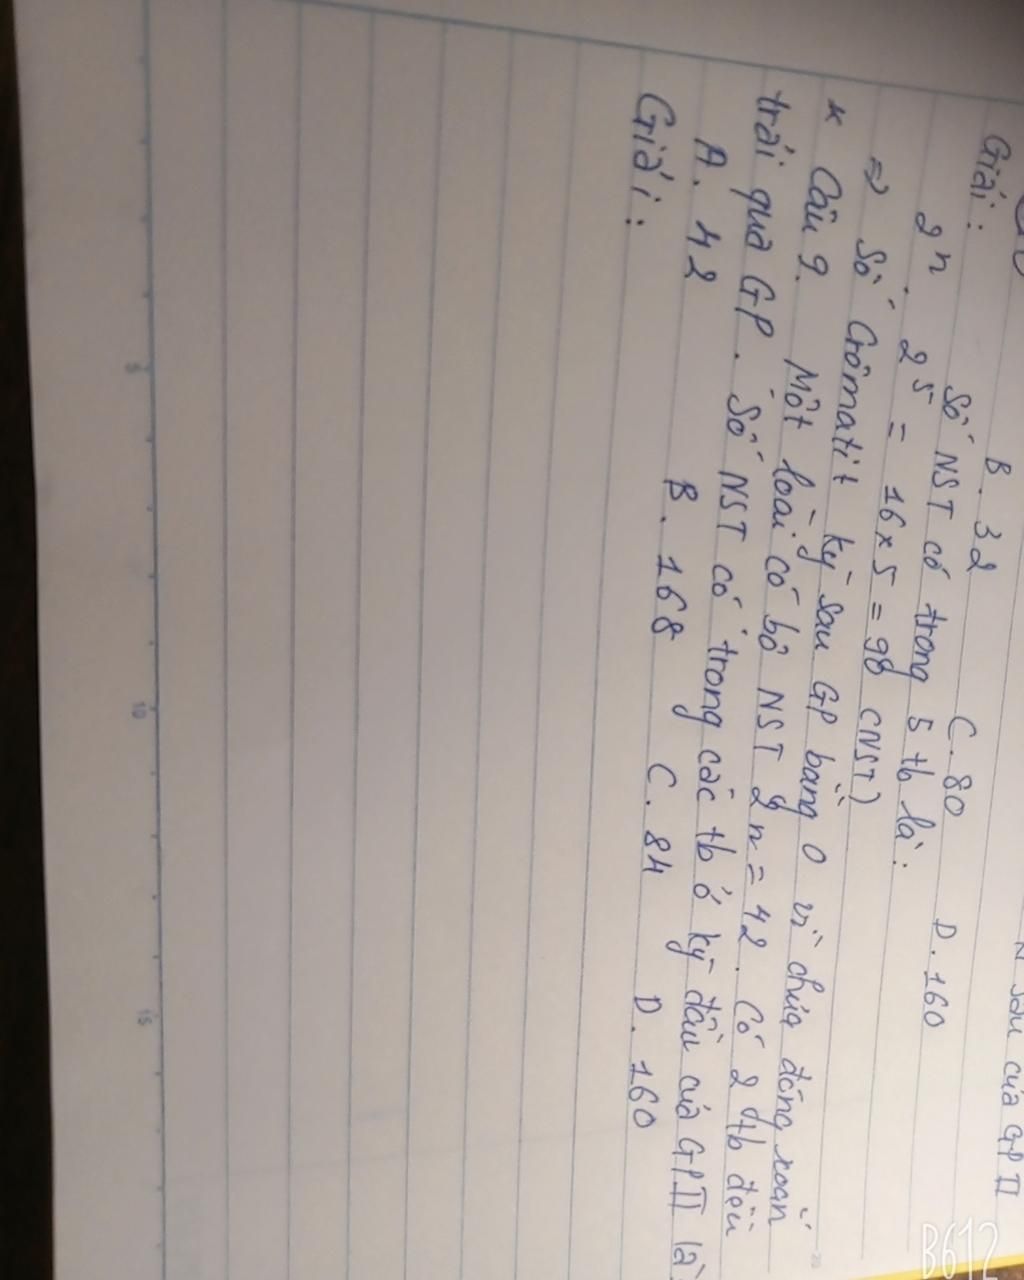 N sau của GP II
B. 32 C. 80 D. 160
Giải: Số NST có trong 5 tb là:
2n. 2⁵ = 16 x 5 = 98 (NST)
=> Số Crômatit kỹ sau GP bằng 0 vì chưa đóng xoắn
* Câu 9. Một loài có bộ NST 2n = 42. Có 2 tb đều
trải qua GP. Số NST có trong các tb ở kỹ đầu của GP II là
A. 42 B. 168 C. 84 D. 160
Giải:
5
10
15
20
B612